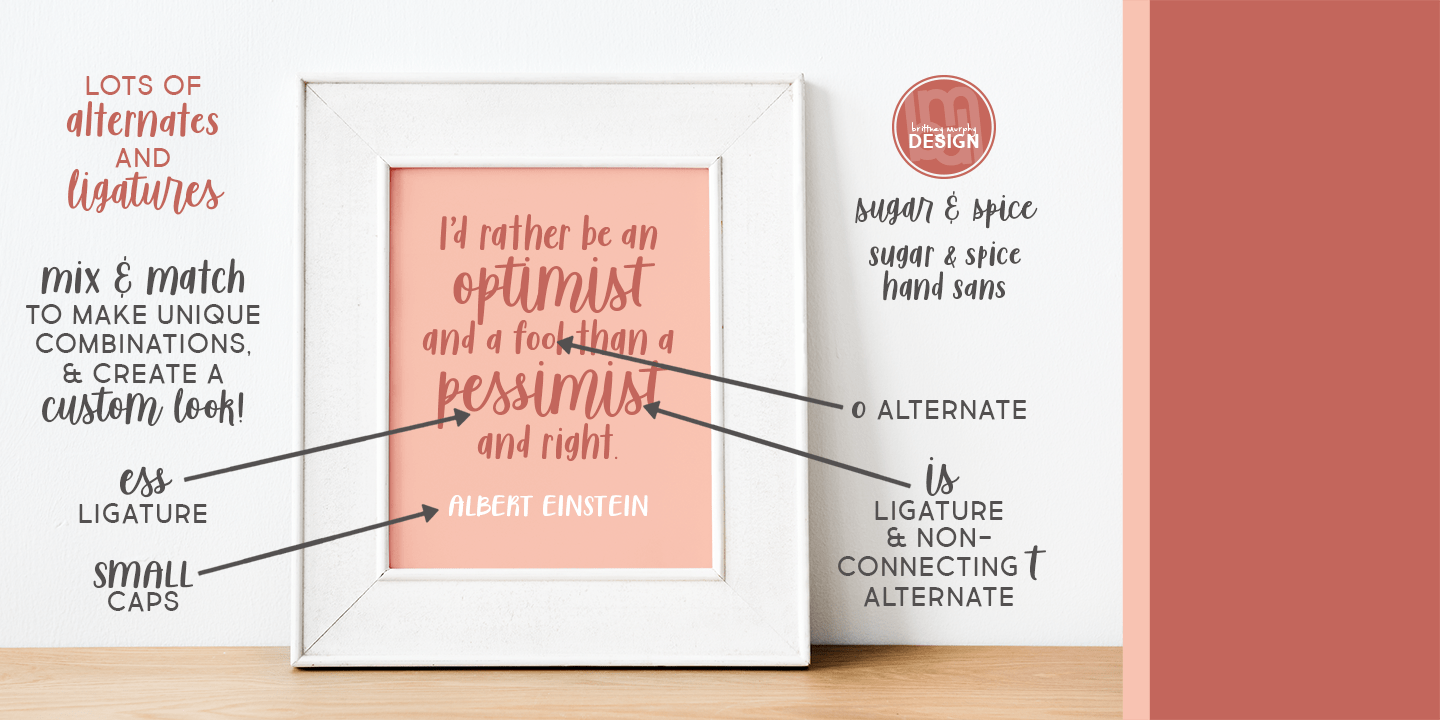 LOTS OF
alternates
AND
ligatures
mix & match
TO MAKE UNIQUE
COMBINATIONS,
& CREATE A
custom look!
ess
LIGATURE
SMALL
CAPS
I'd rather be an
optimist
and a fool than a
pessimist
and right.
ALBERT EINSTEIN
brittney murphy
DESIGN
sugar & spice
sugar & spice
hand sans
o ALTERNATE
is
LIGATURE
& NON-
CONNECTING t
ALTERNATE